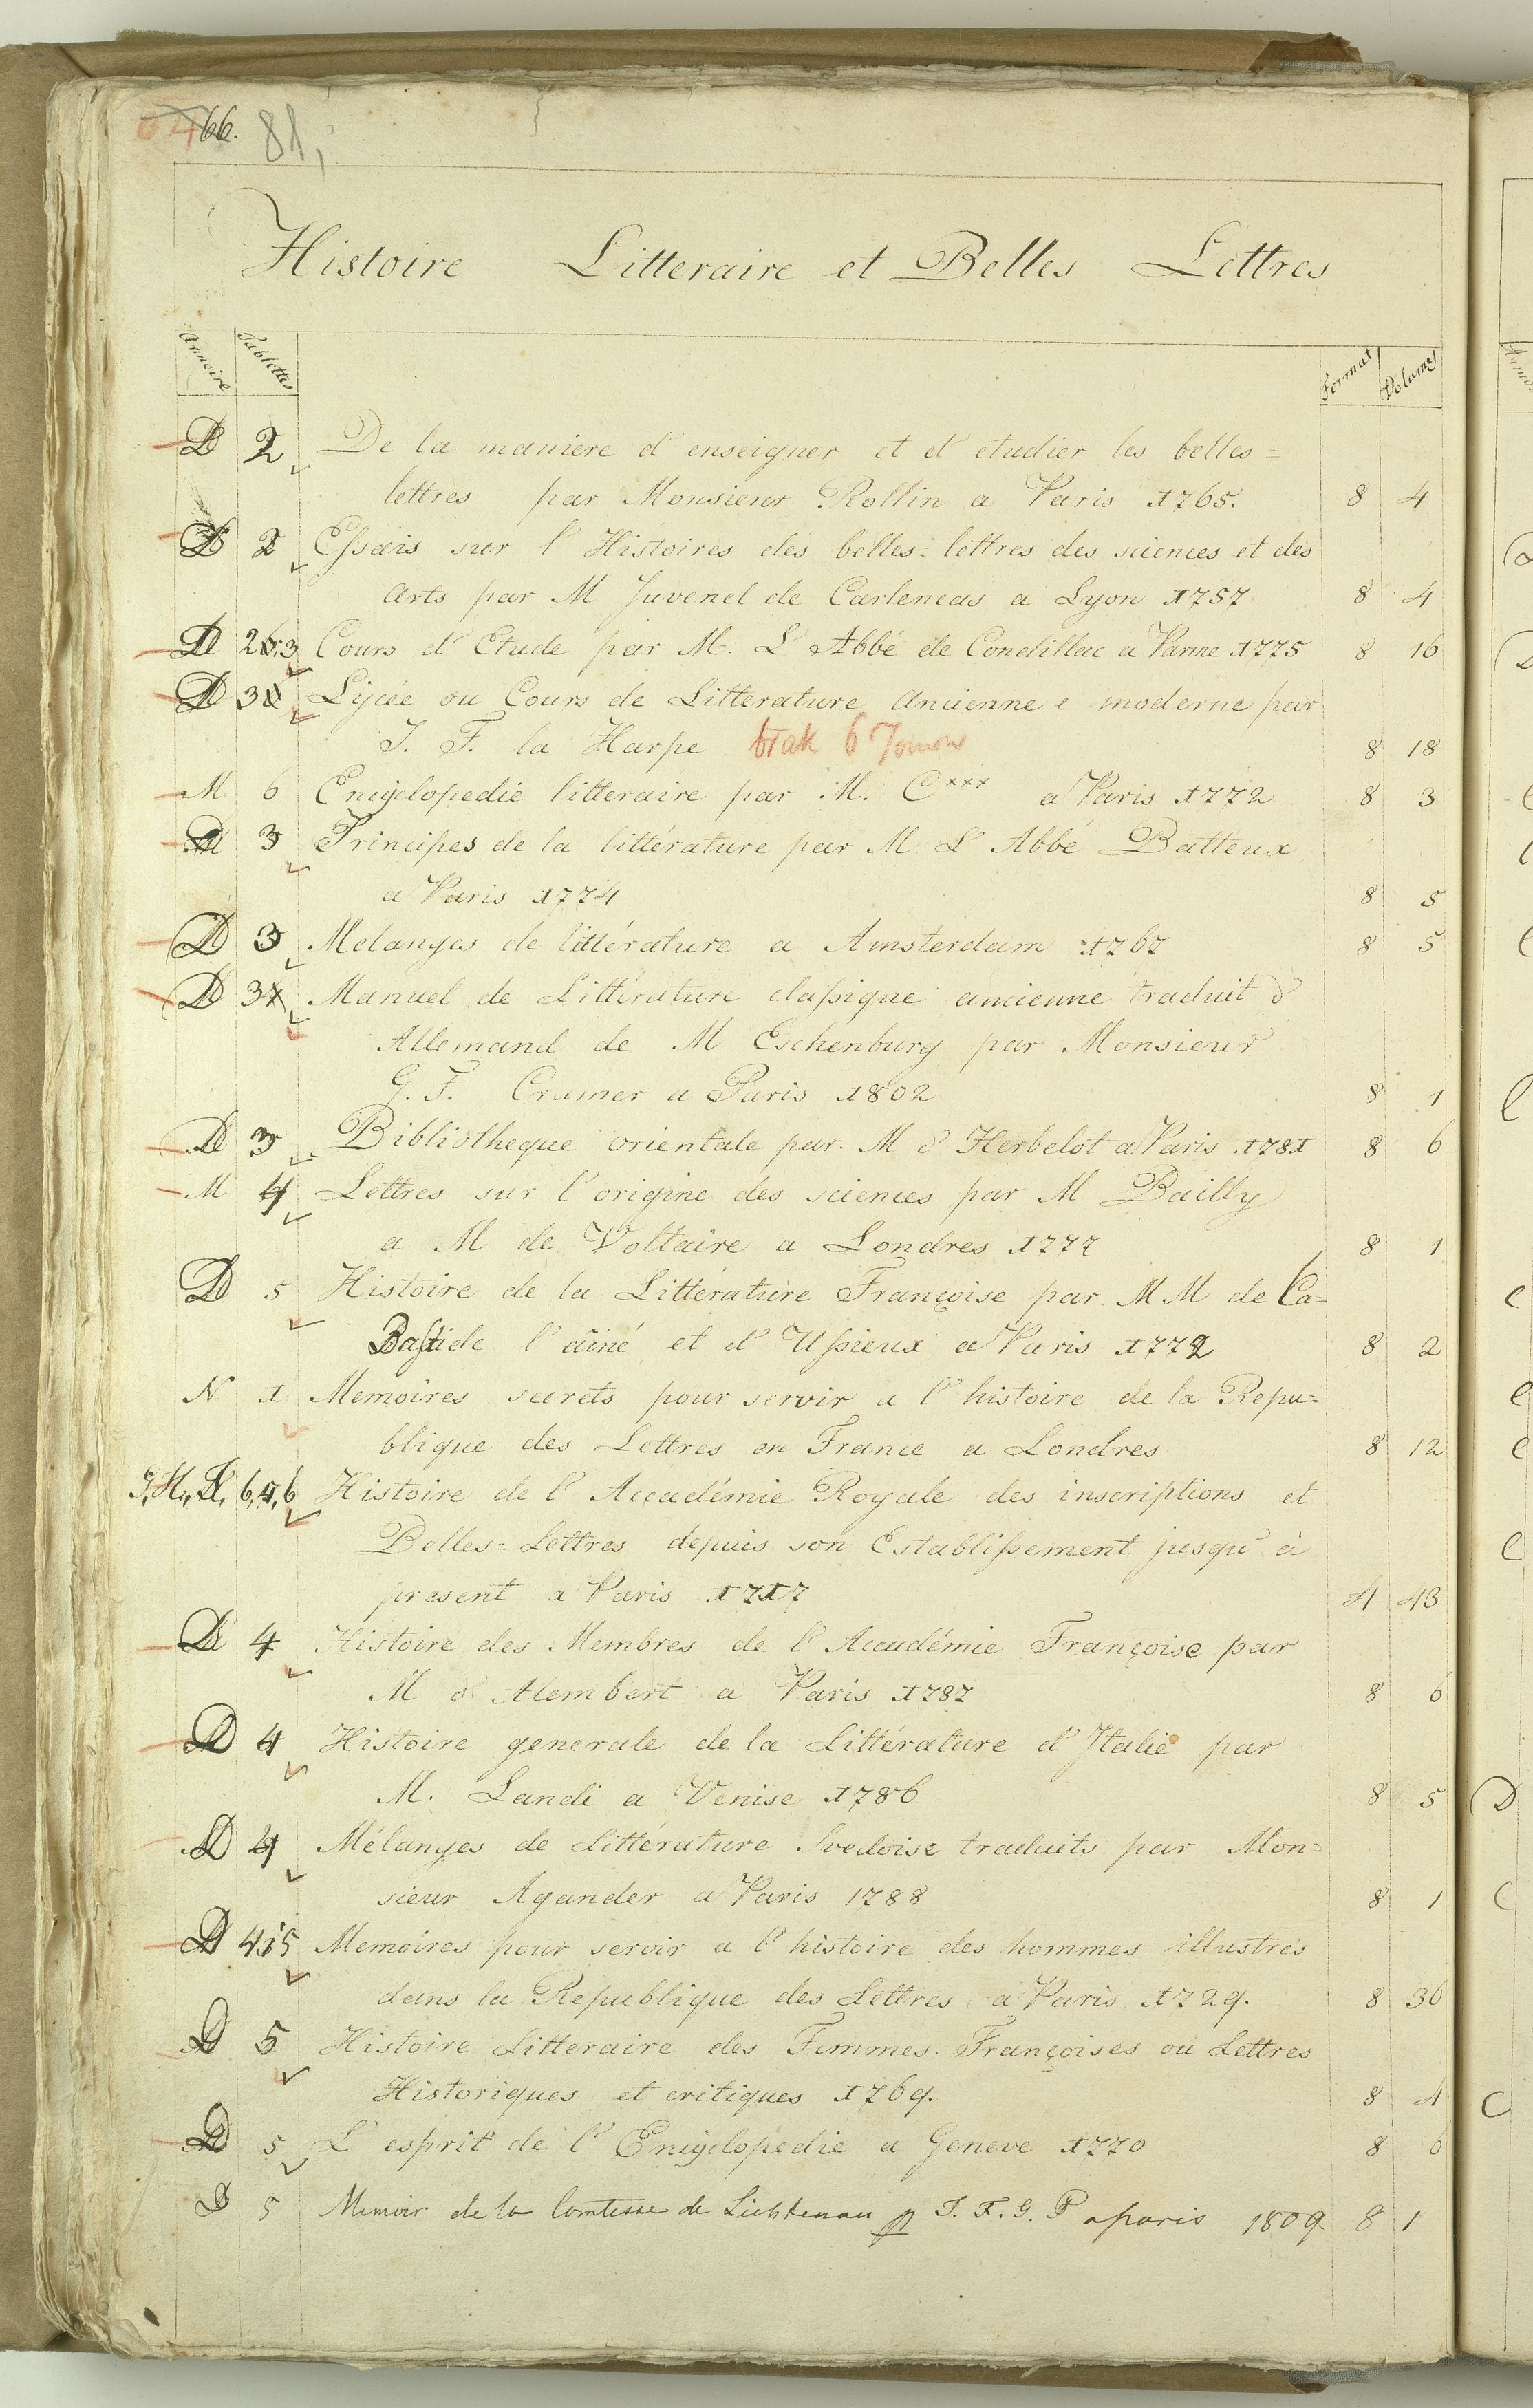 66. 81,
Histoire Litteraire et Belles Lettres
Armoire Tablettes Format Volumes
D 2 De la maniere d'enseigner et d'etudier les belles=
lettres par Monsieur Rollin a Paris 1765. 8 4
D 2 Eſsais sur l'Histoires des belles=lettres des sciences et des
arts par M Juvenel de Carlencas a Lyon 1757 8 4
D Cours d'Etude par M. L'Abbé de Condillac a Parme 1775 8 16
D 3 Lycée ou Cours de Litterature Ancienne e moderne par
J. F. la Harpe brak 6 Tomow 8 18
M 6 Encyclopedie litteraire par M. C*** a Paris 1772 8 3
3 Principes de la littérature par M L'Abbé Batteux
a Paris 1774 8 5
D 3 Melanges de littérature a Amsterdam 1767 8 5
D 3 Manuel de Littérature claſsique ancienne traduit d'
Allemand de M Eschenburg par Monsieur
G. F. Cramer a Paris 1802 8 1
D 3 Bibliotheque orientale par M d'Herbelot a Paris 1781 8 6
M 4 Lettres sur l'origine des sciences par M Bailly
a M de Voltaire a Londres 1777 8 1
D 5 Histoire de la Littérature Françoise par MM de la=
Baſtide l'ainé et d'Uſsieux a Paris 1772 8 2
N 1 Memoires secrets pour servir a l'histoire de la Repu=
blique des Lettres en France a Londres 8 12
Histoire de l'Accadémie Royale des inscriptions et
Belles=Lettres depuis son Establiſsement jusqu'à
present a Paris 1717 4 43
D 4 Histoire des Membres de l'Accadémie Françoise par
M d'Alembert a Paris 1787 8 6
D 4 Histoire generale de la Littérature d'Italie par
M. Landi a Venise 1786 8 5
D 4 Mélanges de Littérature Svedoise traduits par Mon=
sieur Agander a Paris 1788 8 1
D 4.i5 Memoires pour servir a l'histoire des hommes illustres
dans la Republique des Lettres a Paris 1729. 8 36
D 5 Histoire Litteraire des Femmes Françoises ou Lettres
Historiques et critiques 1769. 8 4
D 5 L'esprit de l'Encyclopedie a Geneve 1770 8 6
D 5 Memoir de la Comtesse de Lichtenau p J. F. G. P a paris 1809. 8 1